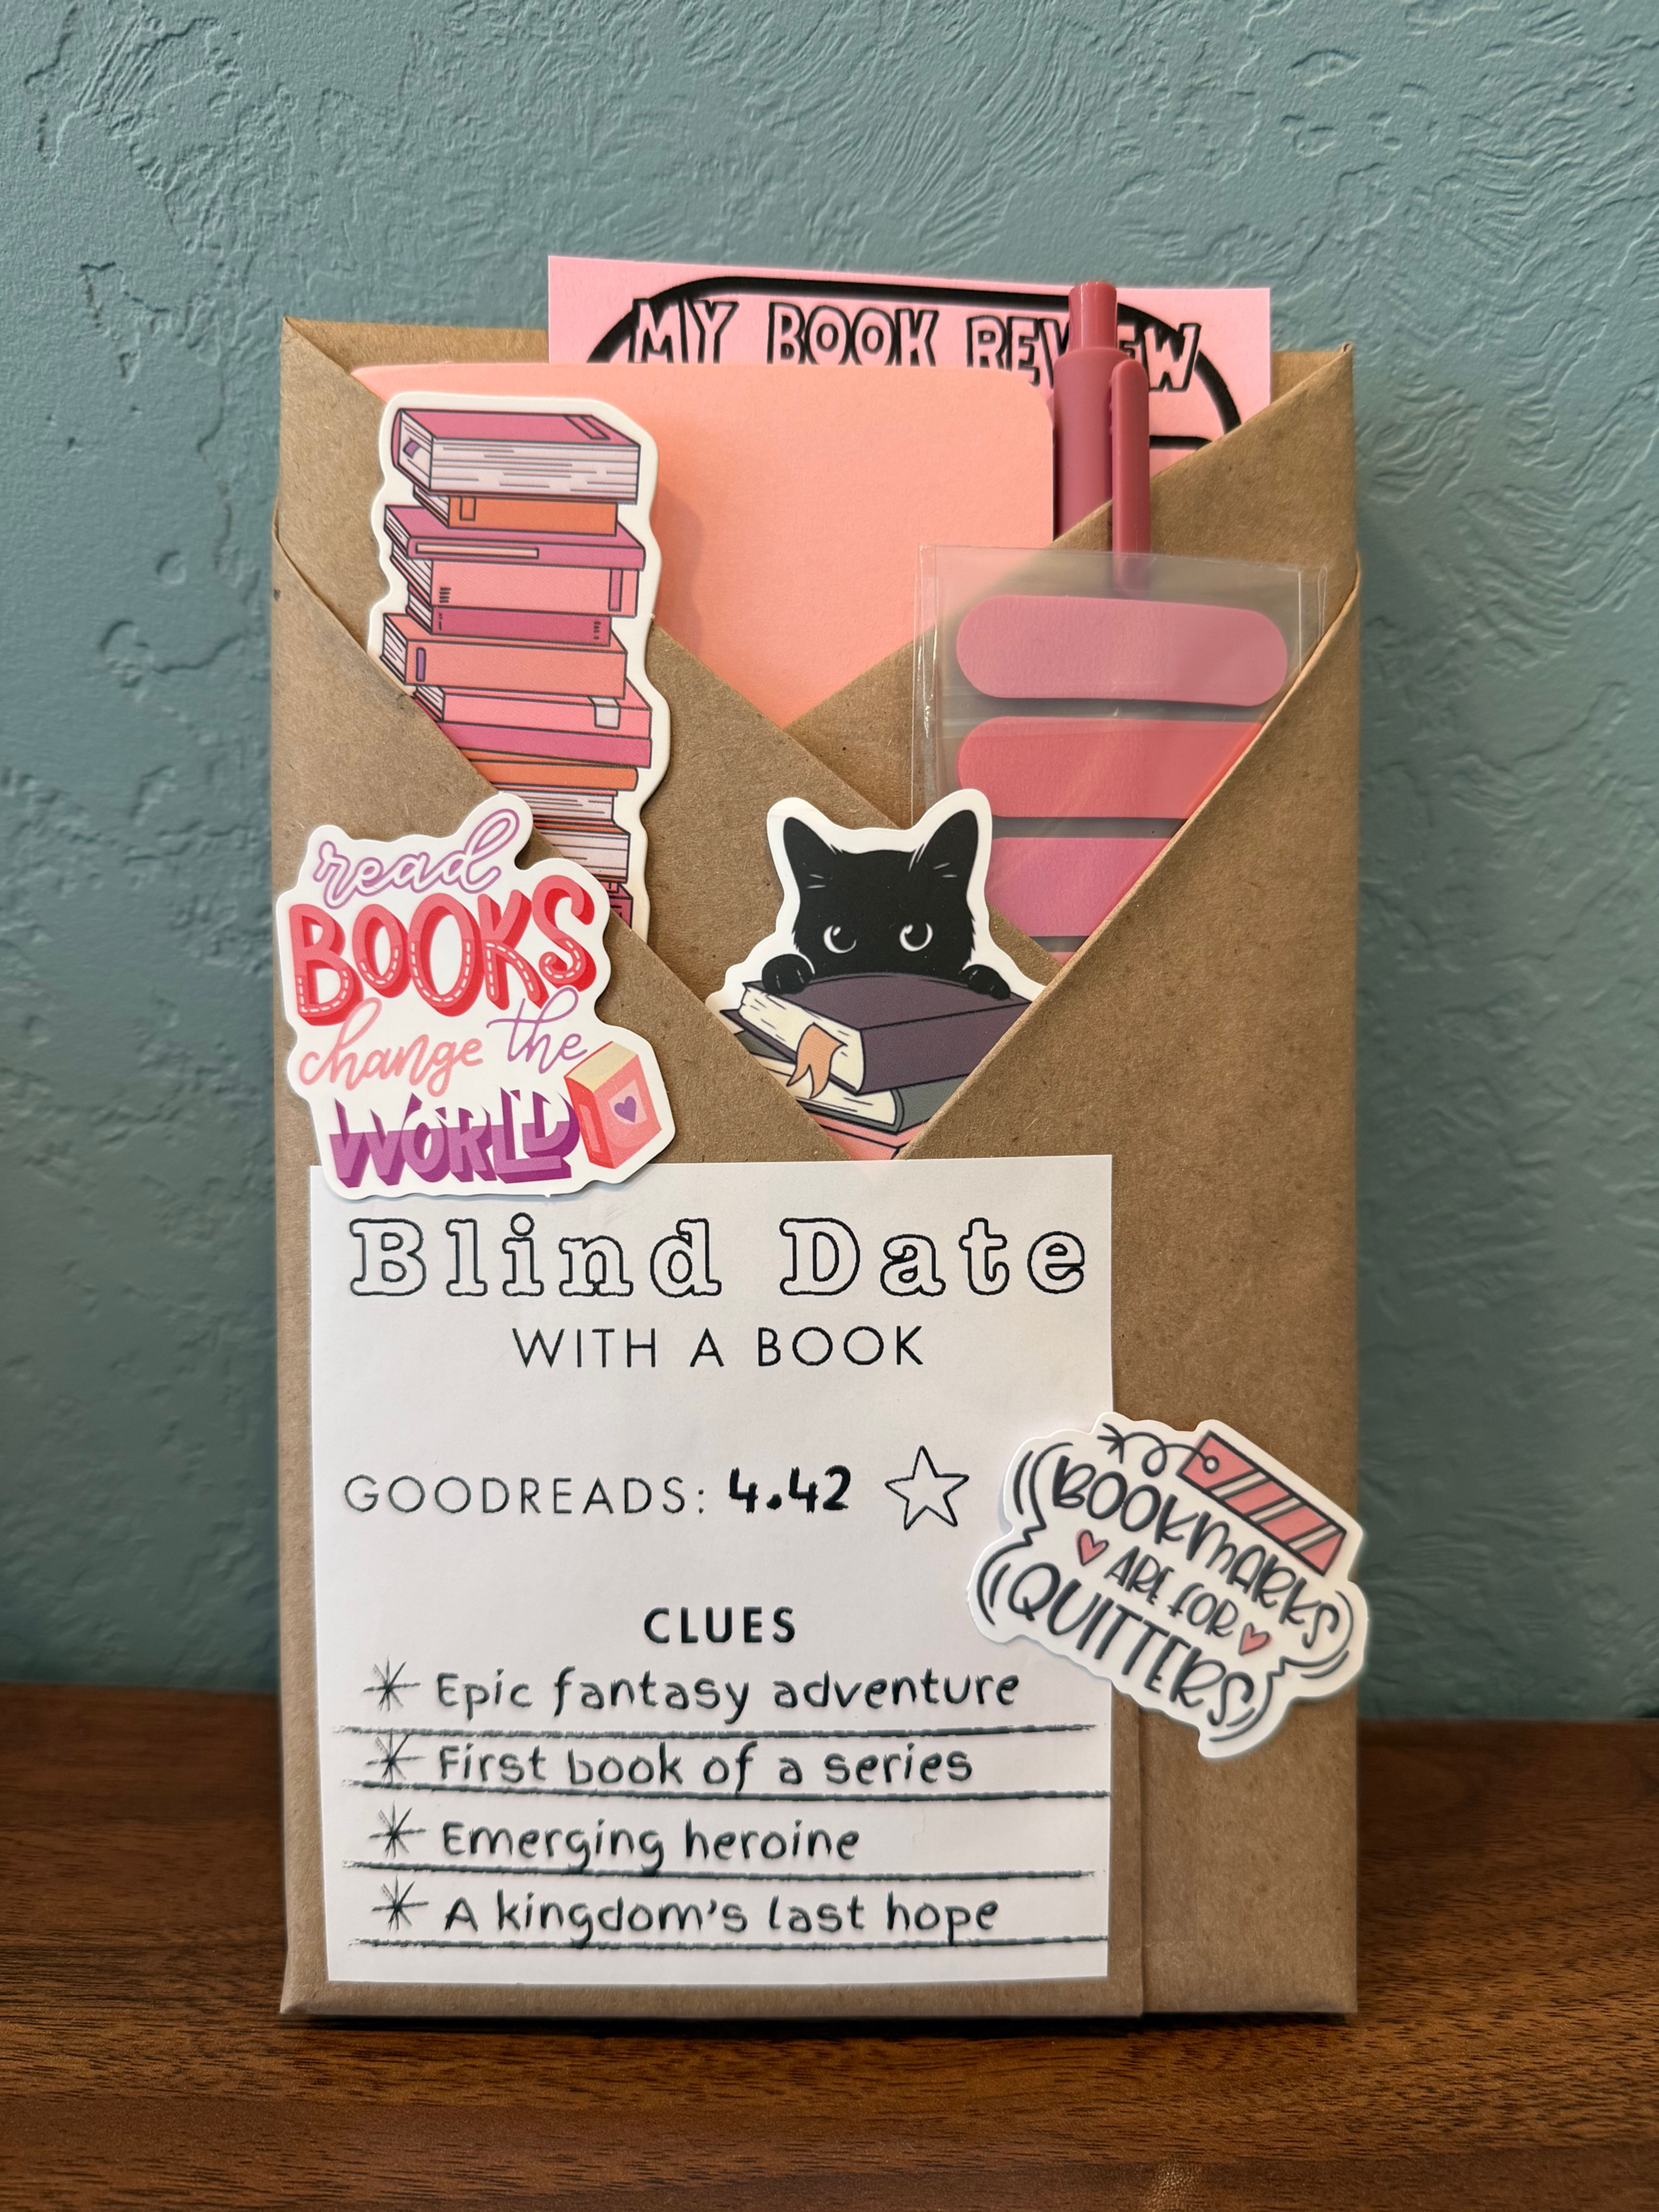 MY BOOK REVIEW
read
BOOKS
change the
WORLD
Blind Date
WITH A BOOK
GOODREADS: 4.42
BOOKMARKS
ARE FOR
QUITTERS
CLUES
Epic fantasy adventure
First book of a series
Emerging heroine
A kingdom's last hope